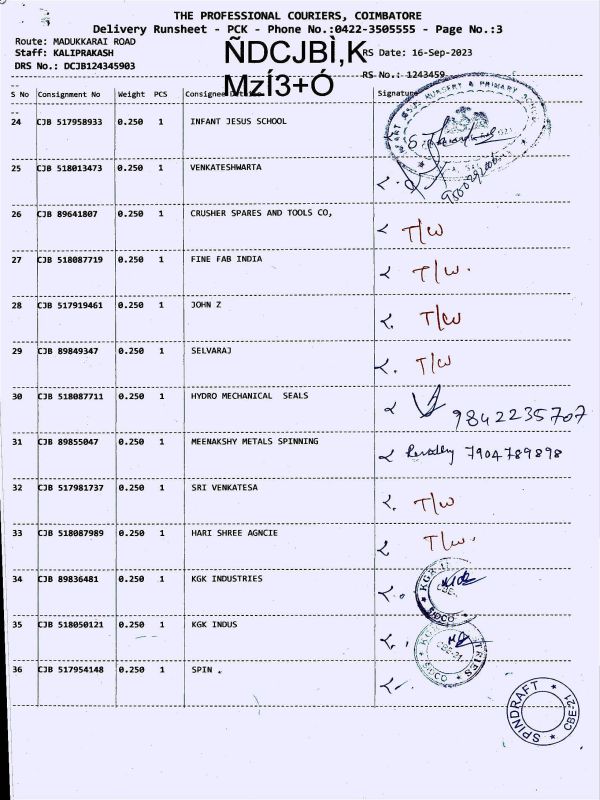 THE PROFESSIONAL COURIERS, COIMBATORE
Delivery Runsheet - PCK - Phone No.:0422-3505555 - Page No.:3
Route: MADUKKARAI ROAD
Staff: KALIPRAKASH ÑDCJBÌ,K RS Date: 16-Sep-2023
DRS No.: DCJB124345903 MzÍ3+Ó RS No.: 1243459
S No Consignment No Weight PCS Consignee Signature
24 CJB 517958933 0.250 1 INFANT JESUS SCHOOL
NURSERY & PRIMARY SCHOOL
25 CJB 518013473 0.250 1 VENKATESHWARTA
26 CJB 89641807 0.250 1 CRUSHER SPARES AND TOOLS CO, T/W
27 CJB 518087719 0.250 1 FINE FAB INDIA T/W.
28 CJB 517919461 0.250 1 JOHN Z T/W
29 CJB 89849347 0.250 1 SELVARAJ T/W
30 CJB 518087711 0.250 1 HYDRO MECHANICAL SEALS 9842235707
31 CJB 89855047 0.250 1 MEENAKSHY METALS SPINNING 7904789898
32 CJB 517981737 0.250 1 SRI VENKATESA T/W
33 CJB 518087989 0.250 1 HARI SHREE AGNCIE T/W.
34 CJB 89836481 0.250 1 KGK INDUSTRIES
KGK CBE-21 SIDCO
35 CJB 518050121 0.250 1 KGK INDUS
CBE-21 SIDCO
36 CJB 517954148 0.250 1 SPIN .
SPINDRAFT CBE-21